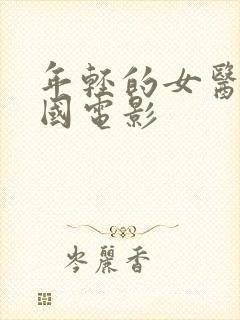 年轻的女醫
國電影
岑麗香